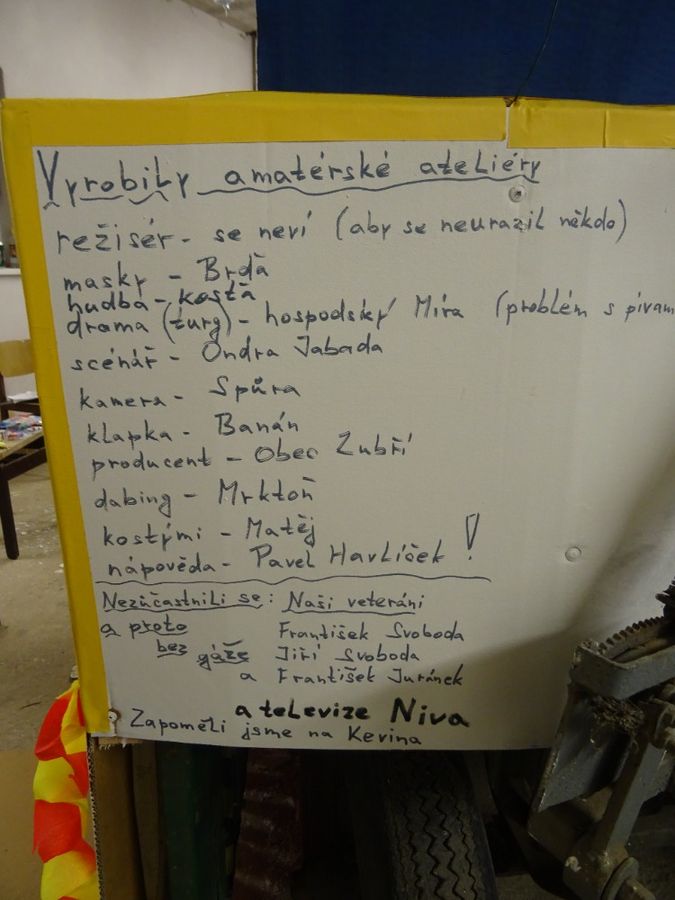 Vyrobily amatérské ateliéry
režisér - se neví (aby se neurazil někdo)
masky - Brďa
hudba - kosťa
drama (turg) - hospodský Míra (problém s pivam
scénář - Ondra Jabada
kamera - Spůra
klapka - Banán
producent - Obec Zubří
dabing - Mrktoň
kostými - Matěj
nápověda - Pavel Havlíček !
Nezúčastnili se: Naši veteráni
a proto František Svoboda
bez gáže Jiří Svoboda
a František Juránek
a televize Niva
Zapoměli jsme na Kevina